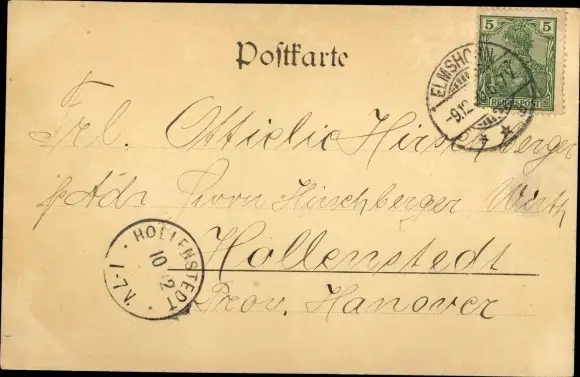 Postkarte
5
REICHSPOST
ELMSHORN
-9.12.
Frl. Ottielie Hirschberger
p Adr Herrn Hirschberger Wirth
Hollenstedt
Prov. Hanover
HOLLENSTEDT
10 12
N7-1